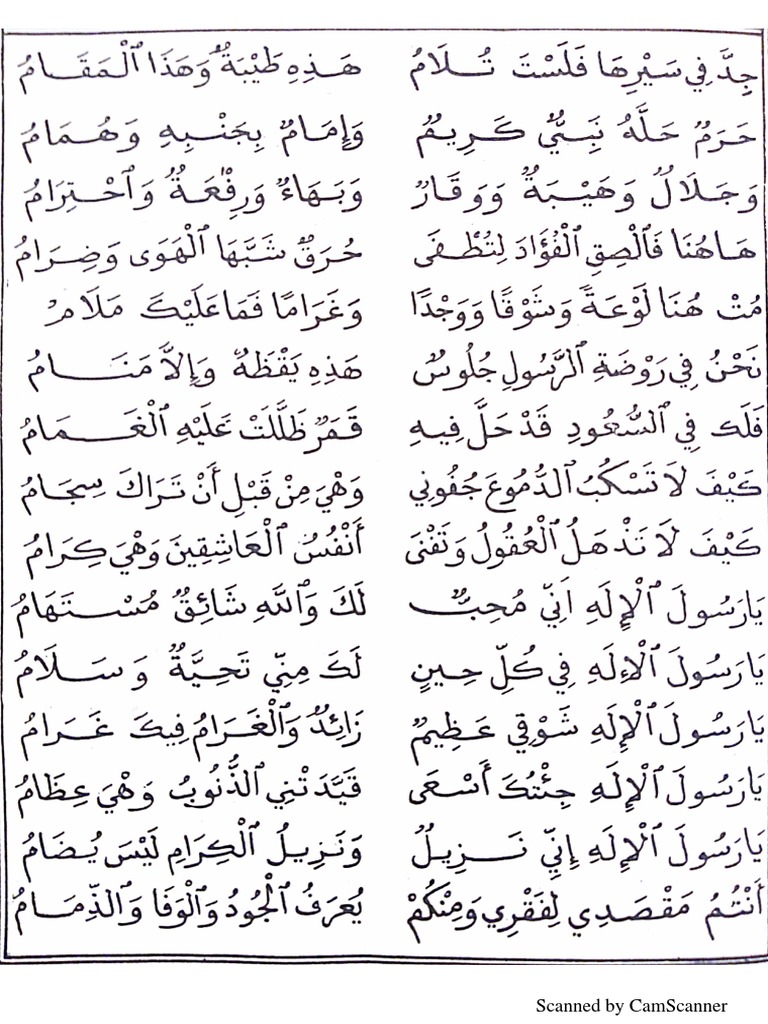 جِدَّ فِي سَيْرِهَا فَلَسْتَ تُلَامُ هَذِهِ طَيْبَةٌ وَهَذَا ٱلْمَقَامُ
حَرَمٌ حَلَّهُ نَبِيٌّ كَرِيمٌ وَإِمَامٌ بِجَنْبِهِ وَهُمَامُ
وَجَلَالٌ وَهَيْبَةٌ وَوَقَارٌ وَبَهَاءٌ وَرِفْعَةٌ وَٱحْتِرَامُ
هَاهُنَا فَٱلْصِقِ ٱلْفُؤَادَ لِتُطْفَى حُرَقٌ شَبَّهَا ٱلْهَوَى وَضِرَامُ
مُتْ هُنَا لَوْعَةً وَشَوْقًا وَوَجْدًا وَغَرَامًا فَمَا عَلَيْكَ مَلَامُ
نَحْنُ فِي رَوْضَةِ ٱلرَّسُولِ جُلُوسٌ هَذِهِ يَقْظَةٌ وَإِلاَّ مَنَامُ
فَلَكٌ فِي ٱلسُّعُودِ قَدْ حَلَّ فِيهِ قَمَرٌ ظَلَّلَتْ عَلَيْهِ ٱلْغَمَامُ
كَيْفَ لَا تَسْكُبُ ٱلدُّمُوعَ جُفُونِي وَهْيَ مِنْ قَبْلِ أَنْ تَرَاكَ سِجَامُ
كَيْفَ لَا تَذْهَلُ ٱلْعُقُولُ وَتَفْنَى أَنْفُسُ ٱلْعَاشِقِينَ وَهْيَ كِرَامُ
يَارَسُولَ ٱلْإِلَهِ اَنِّي مُحِبٌّ لَكَ وَٱللَّهِ شَائِقٌ مُسْتَهَامُ
يَارَسُولَ ٱلْإِلَهِ فِي كُلِّ حِينٍ لَكَ مِنِّي تَحِيَّةٌ وَسَلَامُ
يَارَسُولَ ٱلْإِلَهِ شَوْقِي عَظِيمٌ زَائِدٌ وَٱلْغَرَامُ فِيكَ غَرَامُ
يَارَسُولَ ٱلْإِلَهِ جِئْتُكَ أَسْعَى قَيَّدَتْنِي ٱلذُّنُوبُ وَهْيَ عِظَامُ
يَارَسُولَ ٱلْإِلَهِ إِنِّي نَزِيلٌ وَنَزِيلُ ٱلْكِرَامِ لَيْسَ يُضَامُ
أَنْتُمُ مَقْصَدِي لِفَقْرِي وَمِنْكُمْ يُعْرَفُ ٱلْجُودُ وَٱلْوَفَا وَٱلذِّمَامُ
Scanned by CamScanner